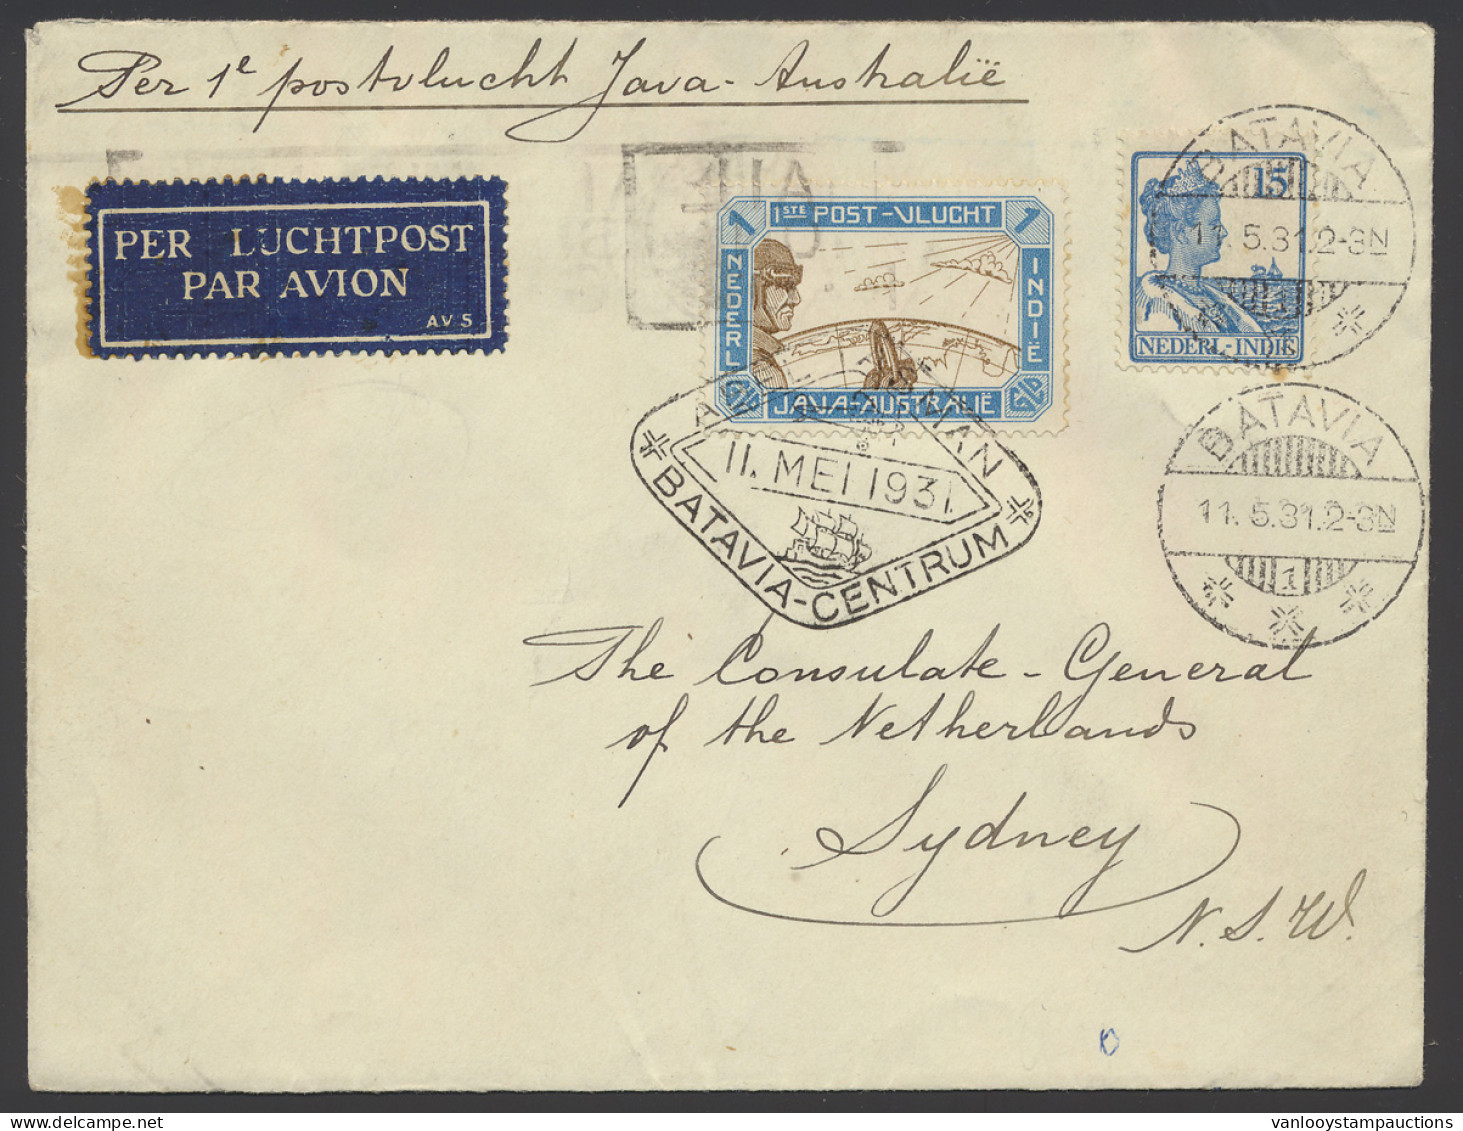 Per 1e postvlucht Java-Australië
PER LUCHTPOST
PAR AVION
AV 5
1 1STE POST-VLUCHT 1
NEDERL.
INDIË
JAVA-AUSTRALIË
11. MEI 1931.
BATAVIA-CENTRUM
15
NEDERL-INDIË
BATAVIA
11.5.31.2-3N
BATAVIA
11.5.31.2-3N
1
The Consulate-General
of the Netherlands
Sydney
N.S.W.
vanlooystampauctions